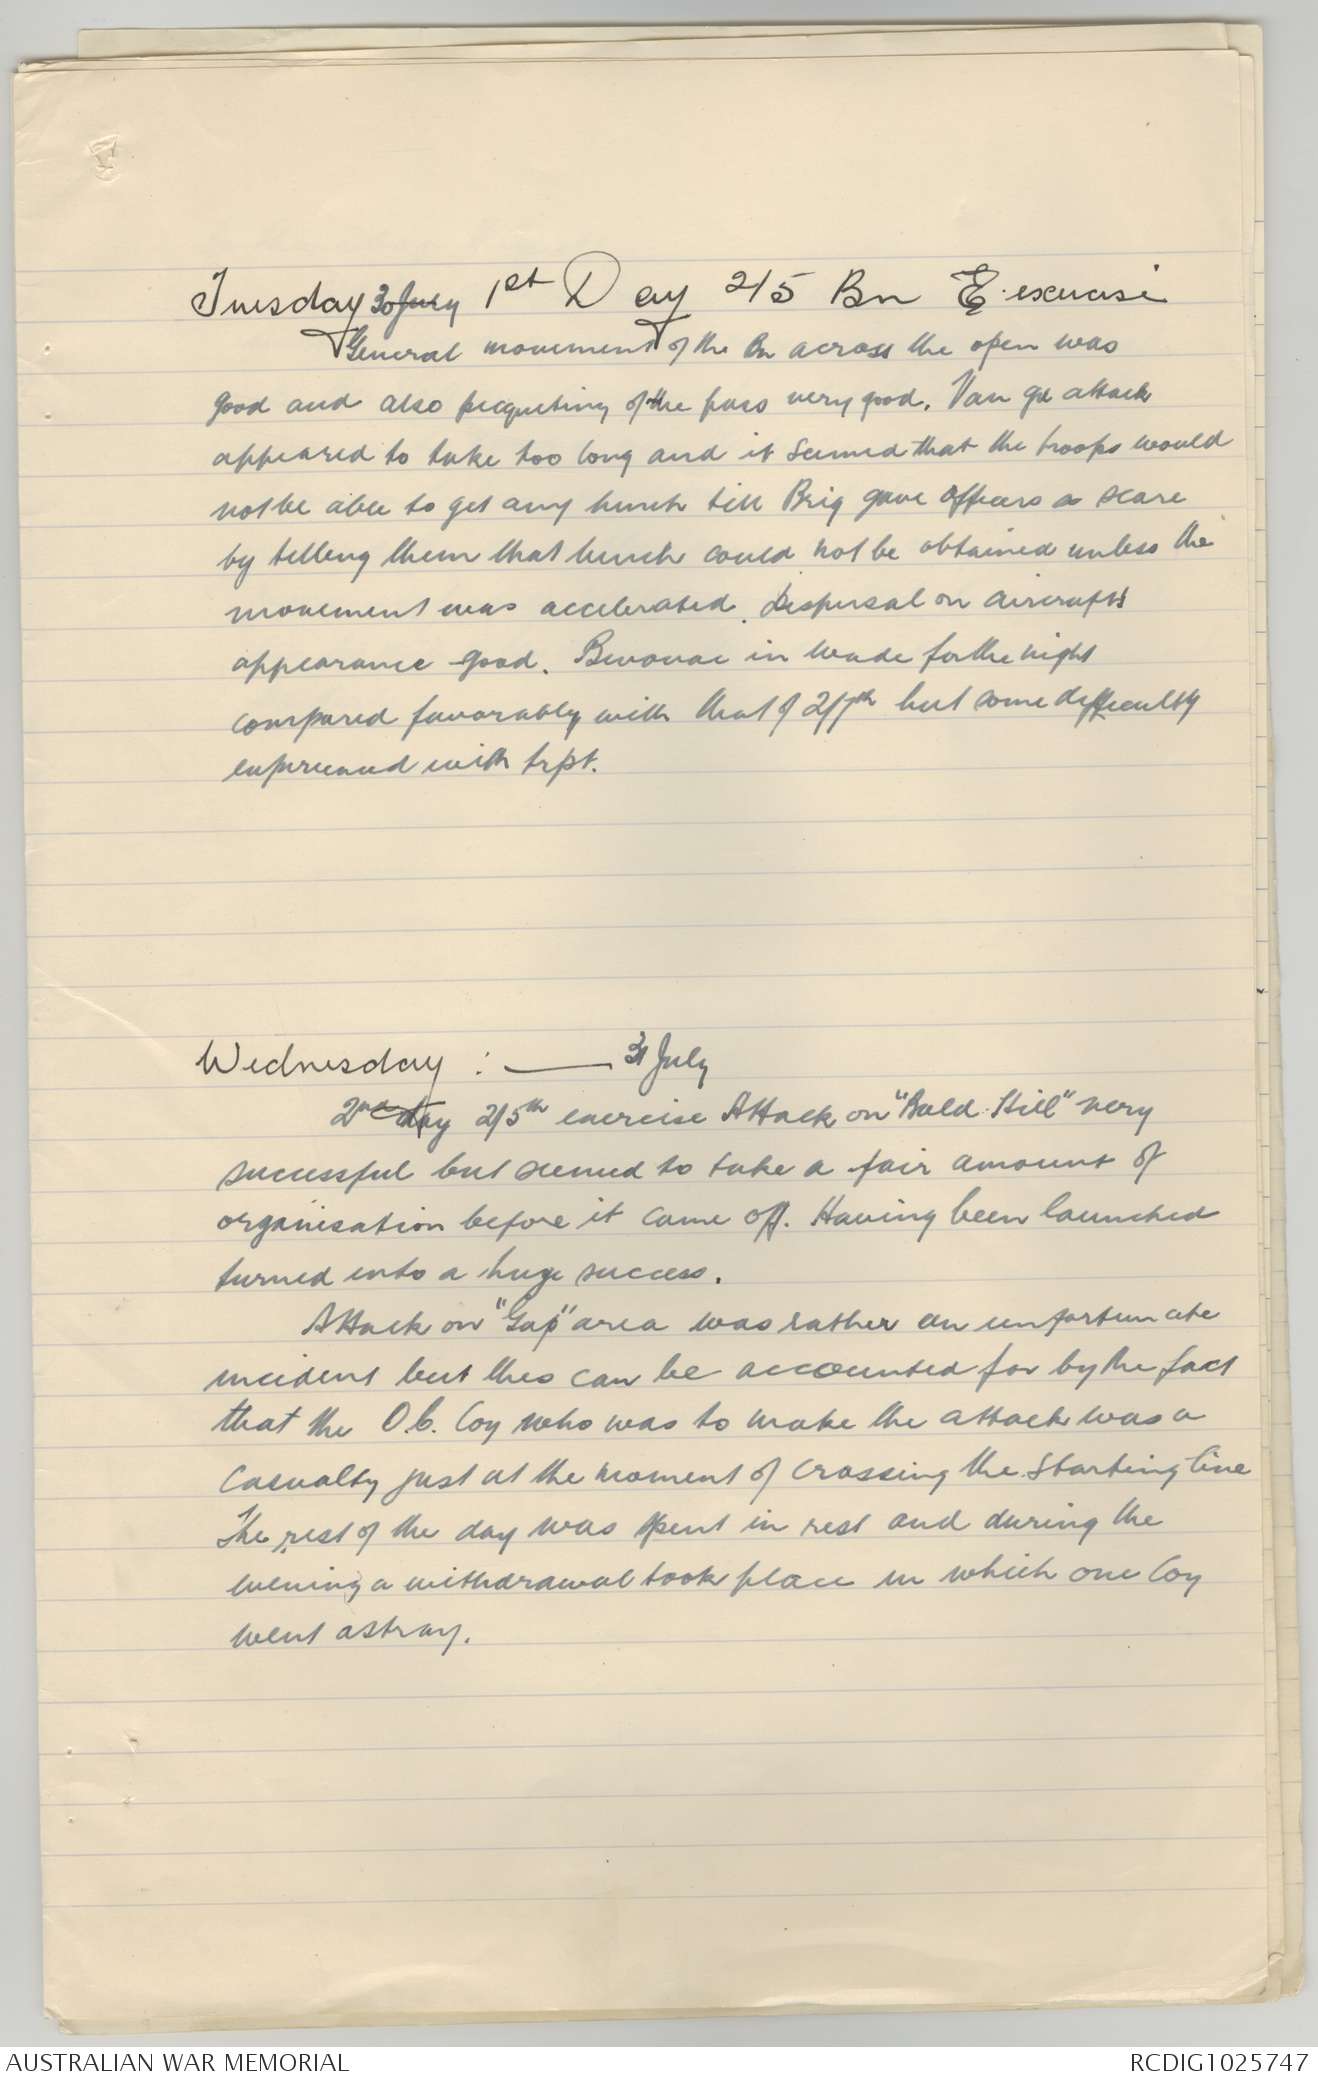 Tuesday 30 July 1st Day 2/5 Bn E. exercise
General movement of the Bn across the open was
good and also picqueting of the pass very good. Van gd attack
appeared to take too long and it seemed that the troops would
not be able to get any lunch till Brig gave officers a scare
by telling them that lunch could not be obtained unless the
movement was accelerated. Dispersal on aircrafts
appearance good. Bivouac in wade for the night
compared favorably with that of 2/7th but some difficulty
experienced with trpt.
Wednesday : — 31 July
2nd day 2/5th exercise Attack on "Bald Hill" very
successful but seemed to take a fair amount of
organisation before it came off. Having been launched
turned into a huge success.
Attack on "Gap" area was rather an unfortunate
incident but this can be accounted for by the fact
that the O.C. Coy who was to make the attack was a
casualty just at the moment of crossing the starting line
The rest of the day was spent in rest and during the
evening a withdrawal took place in which one Coy
went astray.
AUSTRALIAN WAR MEMORIAL
RCDIG1025747